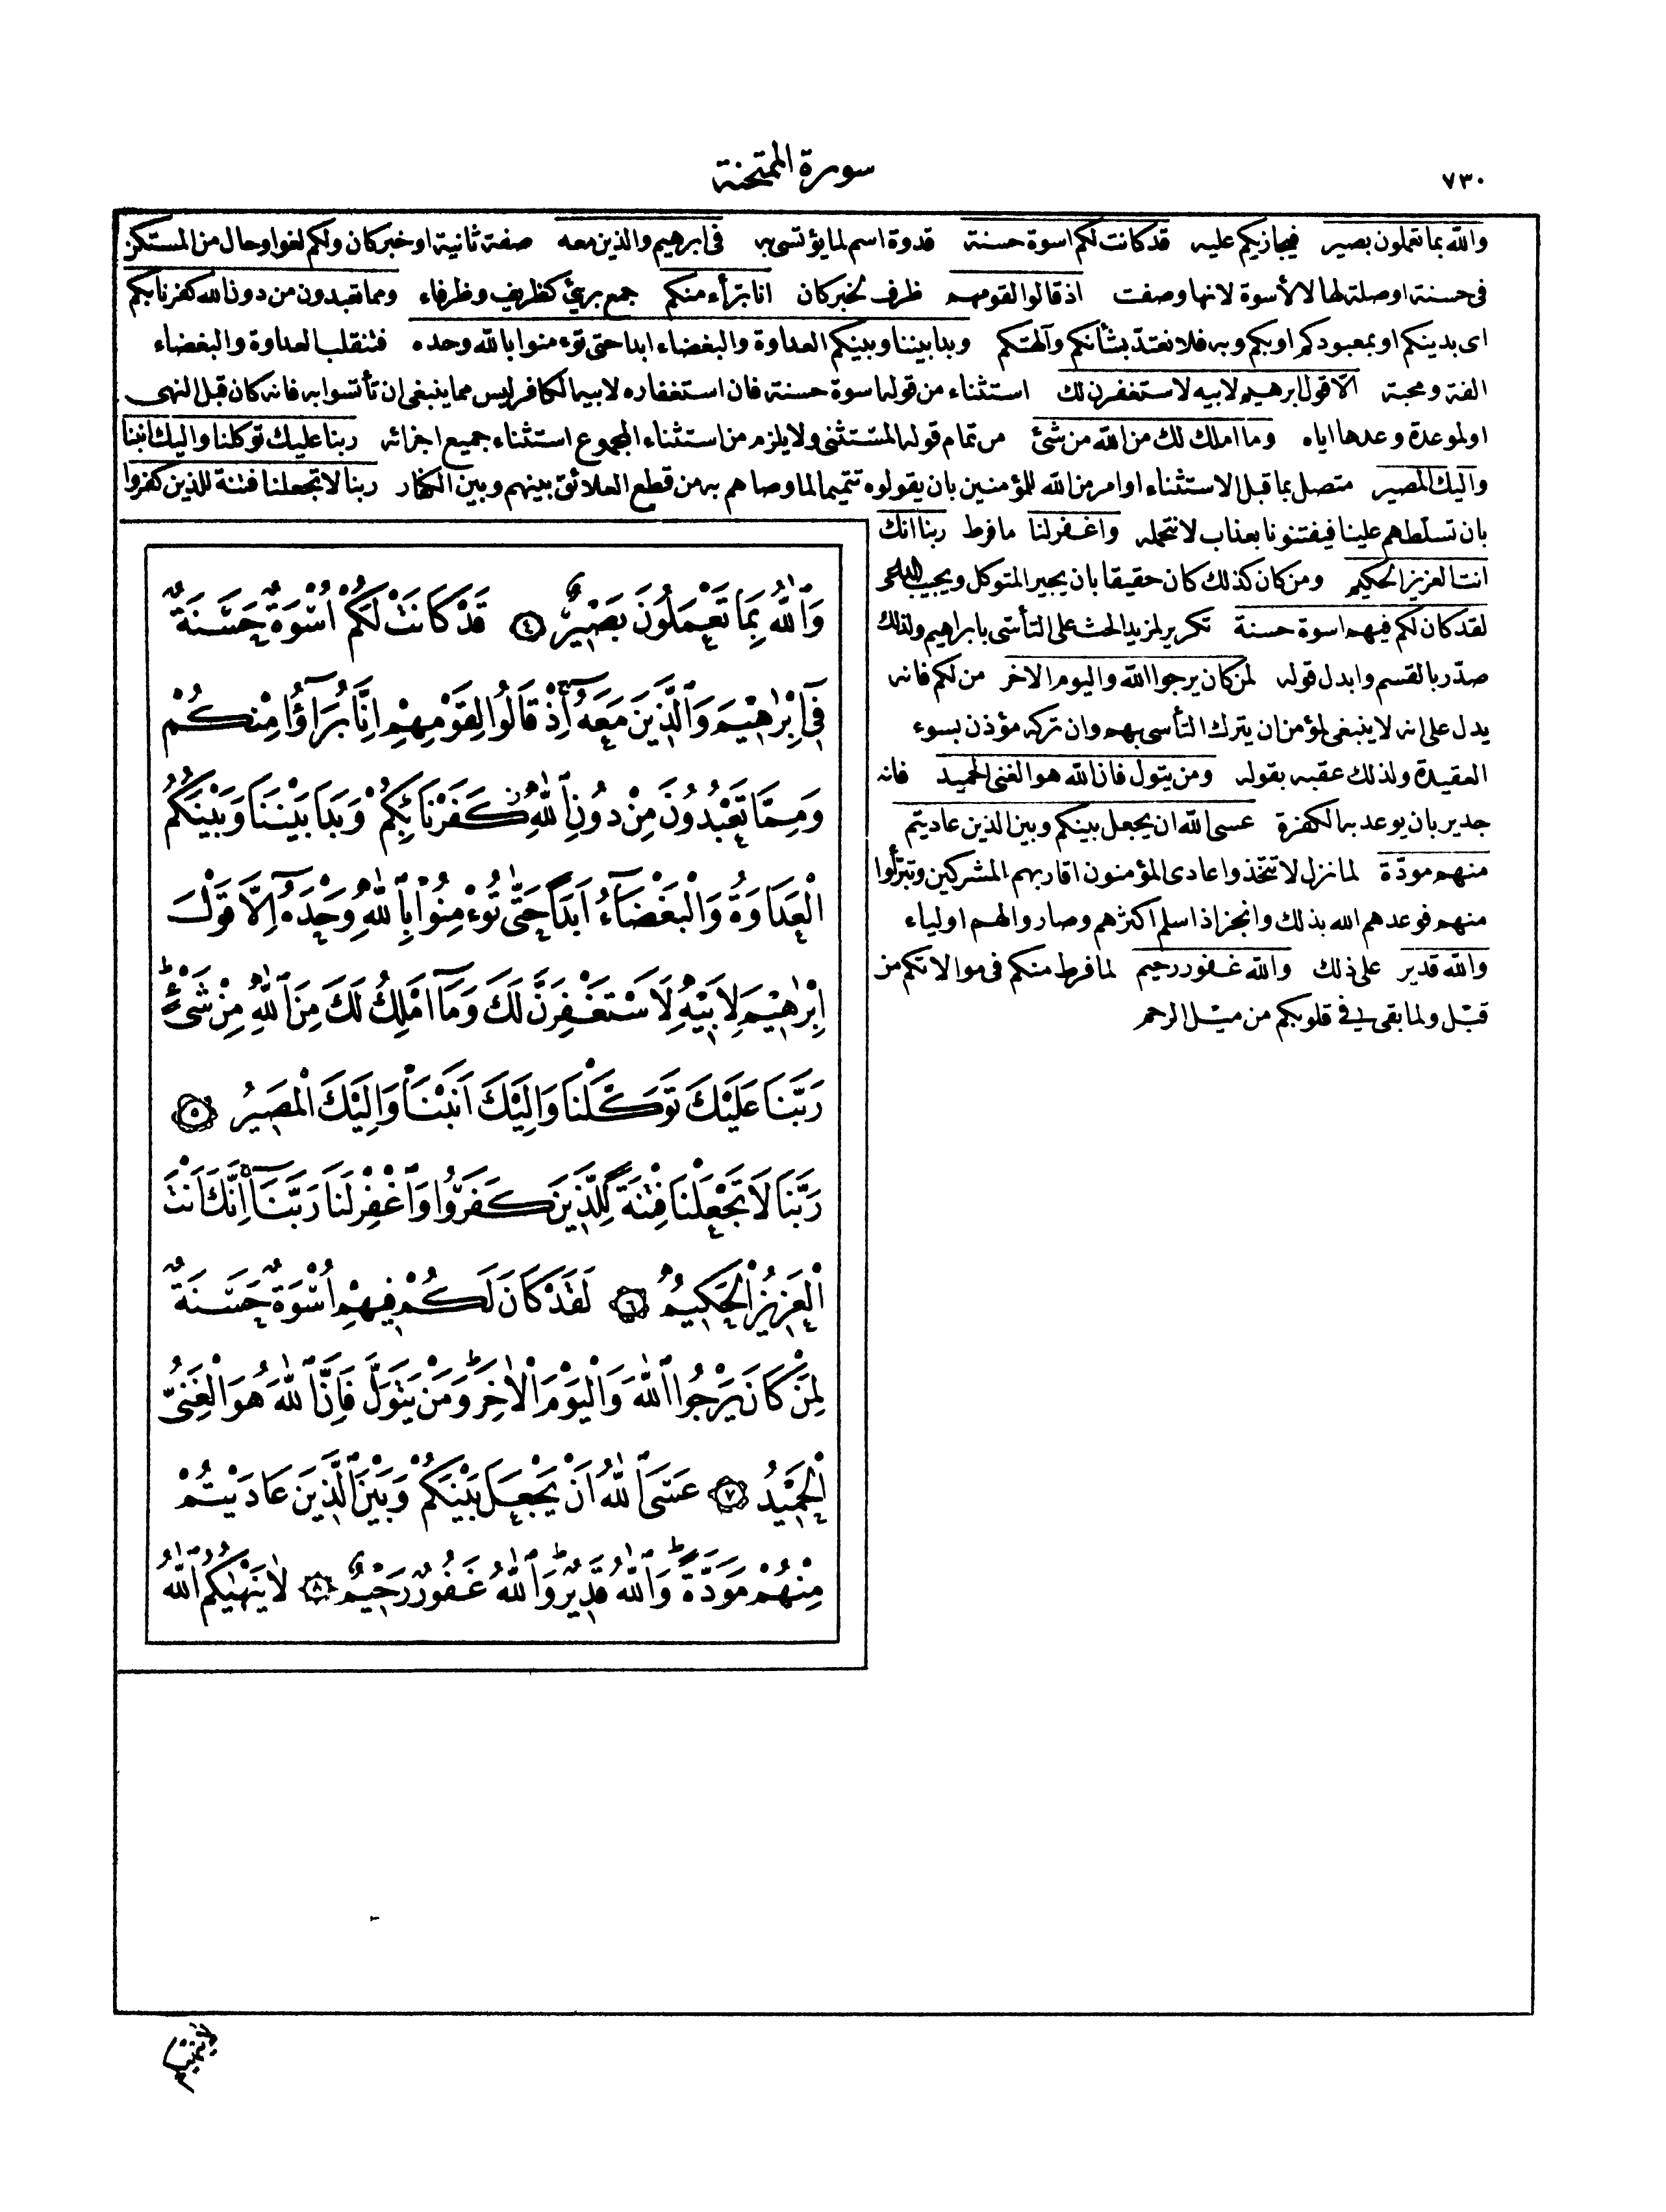 ٧٣٠
سورة الممتحنة
والله بما تعملون بصير فيجازيكم عليه قد كانت لكم اسوة حسنة قدوة اسم لما يؤتسى به فى ابرهيم والذين معه صفة ثانية او خبر كان ولكم لغو او حال من المستكن
فى حسنة او صلة لها لا لأسوة لانها وصفت اذ قالوا لقومهم ظرف لخبر كان انا برآء منكم جمع برئ كظريف وظرفاء ومما تعبدون من دون الله كفرنا بكم
اى بدينكم او بمعبودكم او بكم وبه فلا نعتد بشأنكم وآلهتكم وبدا بيننا وبينكم العداوة والبغضاء ابدا حتى تؤمنوا بالله وحده فتنقلب العداوة والبغضاء
الفة ومحبة الا قول ابرهيم لابيه لاستغفرن لك استثناء من قوله اسوة حسنة فان استغفاره لابيه الكافر ليس مما ينبغى ان تأتسوا به فانه كان قبل النهى
او لموعدة وعدها اياه وما املك لك من الله من شئ من تمام قوله المستثنى ولا يلزم من استثناء المجموع استثناء جميع اجزائه ربنا عليك توكلنا واليك انبنا
واليك المصير متصل بما قبل الاستثناء او امر من الله للمؤمنين بان يقولوه تتميما لما وصاهم به من قطع العلائق بينهم وبين الكفار ربنا لا تجعلنا فتنة للذين كفروا
بان تسلطهم علينا فيفتنونا بعذاب لا نتحمله واغفر لنا ما فرط ربنا انك
انت العزيز الحكيم ومن كان كذلك كان حقيقا بان يجير المتوكل ويجيب الداعى
لقد كان لكم فيهم اسوة حسنة تكرير لمزيد الحث على التأسى بابراهيم ولذلك
صدّر بالقسم وابدل قوله لمن كان يرجوا الله واليوم الاخر من لكم فانه
يدل على انه لا ينبغى لمؤمن ان يترك التأسى بهم وان تركه مؤذن بسوء
العقيدة ولذلك عقبه بقوله ومن يتول فان الله هو الغنى الحميد فانه
جدير بان يوعد به الكفرة عسى الله ان يجعل بينكم وبين الذين عاديتم
منهم مودّة لما نزل لا تتخذوا عادى المؤمنون اقاربهم المشركين وتبرّأوا
منهم فوعدهم الله بذلك وانجز اذ اسلم اكثرهم وصاروا لهم اولياء
والله قدير على ذلك والله غفور رحيم لما فرط منكم فى موالاتكم من
قبل ولما بقى فى قلوبكم من ميل الرحم
وَٱللّٰهُ بِمَا تَعْمَلُونَ بَصِيْرٌ ٤ قَدْ كَانَتْ لَكُمْ اُسْوَةٌ حَسَنَةٌ
فِٓى اِبْرٰهِيْمَ وَالَّذِيْنَ مَعَهُ اِذْ قَالُوا لِقَوْمِهِمْ اِنَّا بُرَآؤُا مِنْكُمْ
وَمِمَّا تَعْبُدُونَ مِنْ دُونِ ٱللّٰهِ كَفَرْنَا بِكُمْ وَبَدَا بَيْنَنَا وَبَيْنَكُمُ
الْعَدَاوَةُ وَالْبَغْضَآءُ اَبَدًا حَتّٰى تُؤْمِنُوْا بِٱللّٰهِ وَحْدَهُٓ اِلَّا قَوْلَ
اِبْرٰهِيْمَ لِاَبِيْهِ لَاَسْتَغْفِرَنَّ لَكَ وَمَآ اَمْلِكُ لَكَ مِنَ ٱللّٰهِ مِنْ شَىْءٍ
رَبَّنَا عَلَيْكَ تَوَكَّلْنَا وَاِلَيْكَ اَنَبْنَا وَاِلَيْكَ الْمَصِيرُ ٥
رَبَّنَا لَا تَجْعَلْنَا فِتْنَةً لِلَّذِينَ كَفَرُوا وَٱغْفِرْ لَنَا رَبَّنَآ اِنَّكَ اَنْتَ
الْعَزِيزُ الْحَكِيمُ ٦ لَقَدْ كَانَ لَكُمْ فِيهِمْ اُسْوَةٌ حَسَنَةٌ
لِمَنْ كَانَ يَرْجُوا ٱللّٰهَ وَالْيَوْمَ الْاٰخِرَ وَمَنْ يَتَوَلَّ فَاِنَّ ٱللّٰهَ هُوَ الْغَنِىُّ
الْحَمِيْدُ ٧ عَسَى ٱللّٰهُ اَنْ يَجْعَلَ بَيْنَكُمْ وَبَيْنَ الَّذِينَ عَادَيْتُمْ
مِنْهُمْ مَوَدَّةً وَٱللّٰهُ قَدِيْرٌ وَٱللّٰهُ غَفُورٌ رَحِيْمٌ ٨ لَا يَنْهٰيكُمُ ٱللّٰهُ